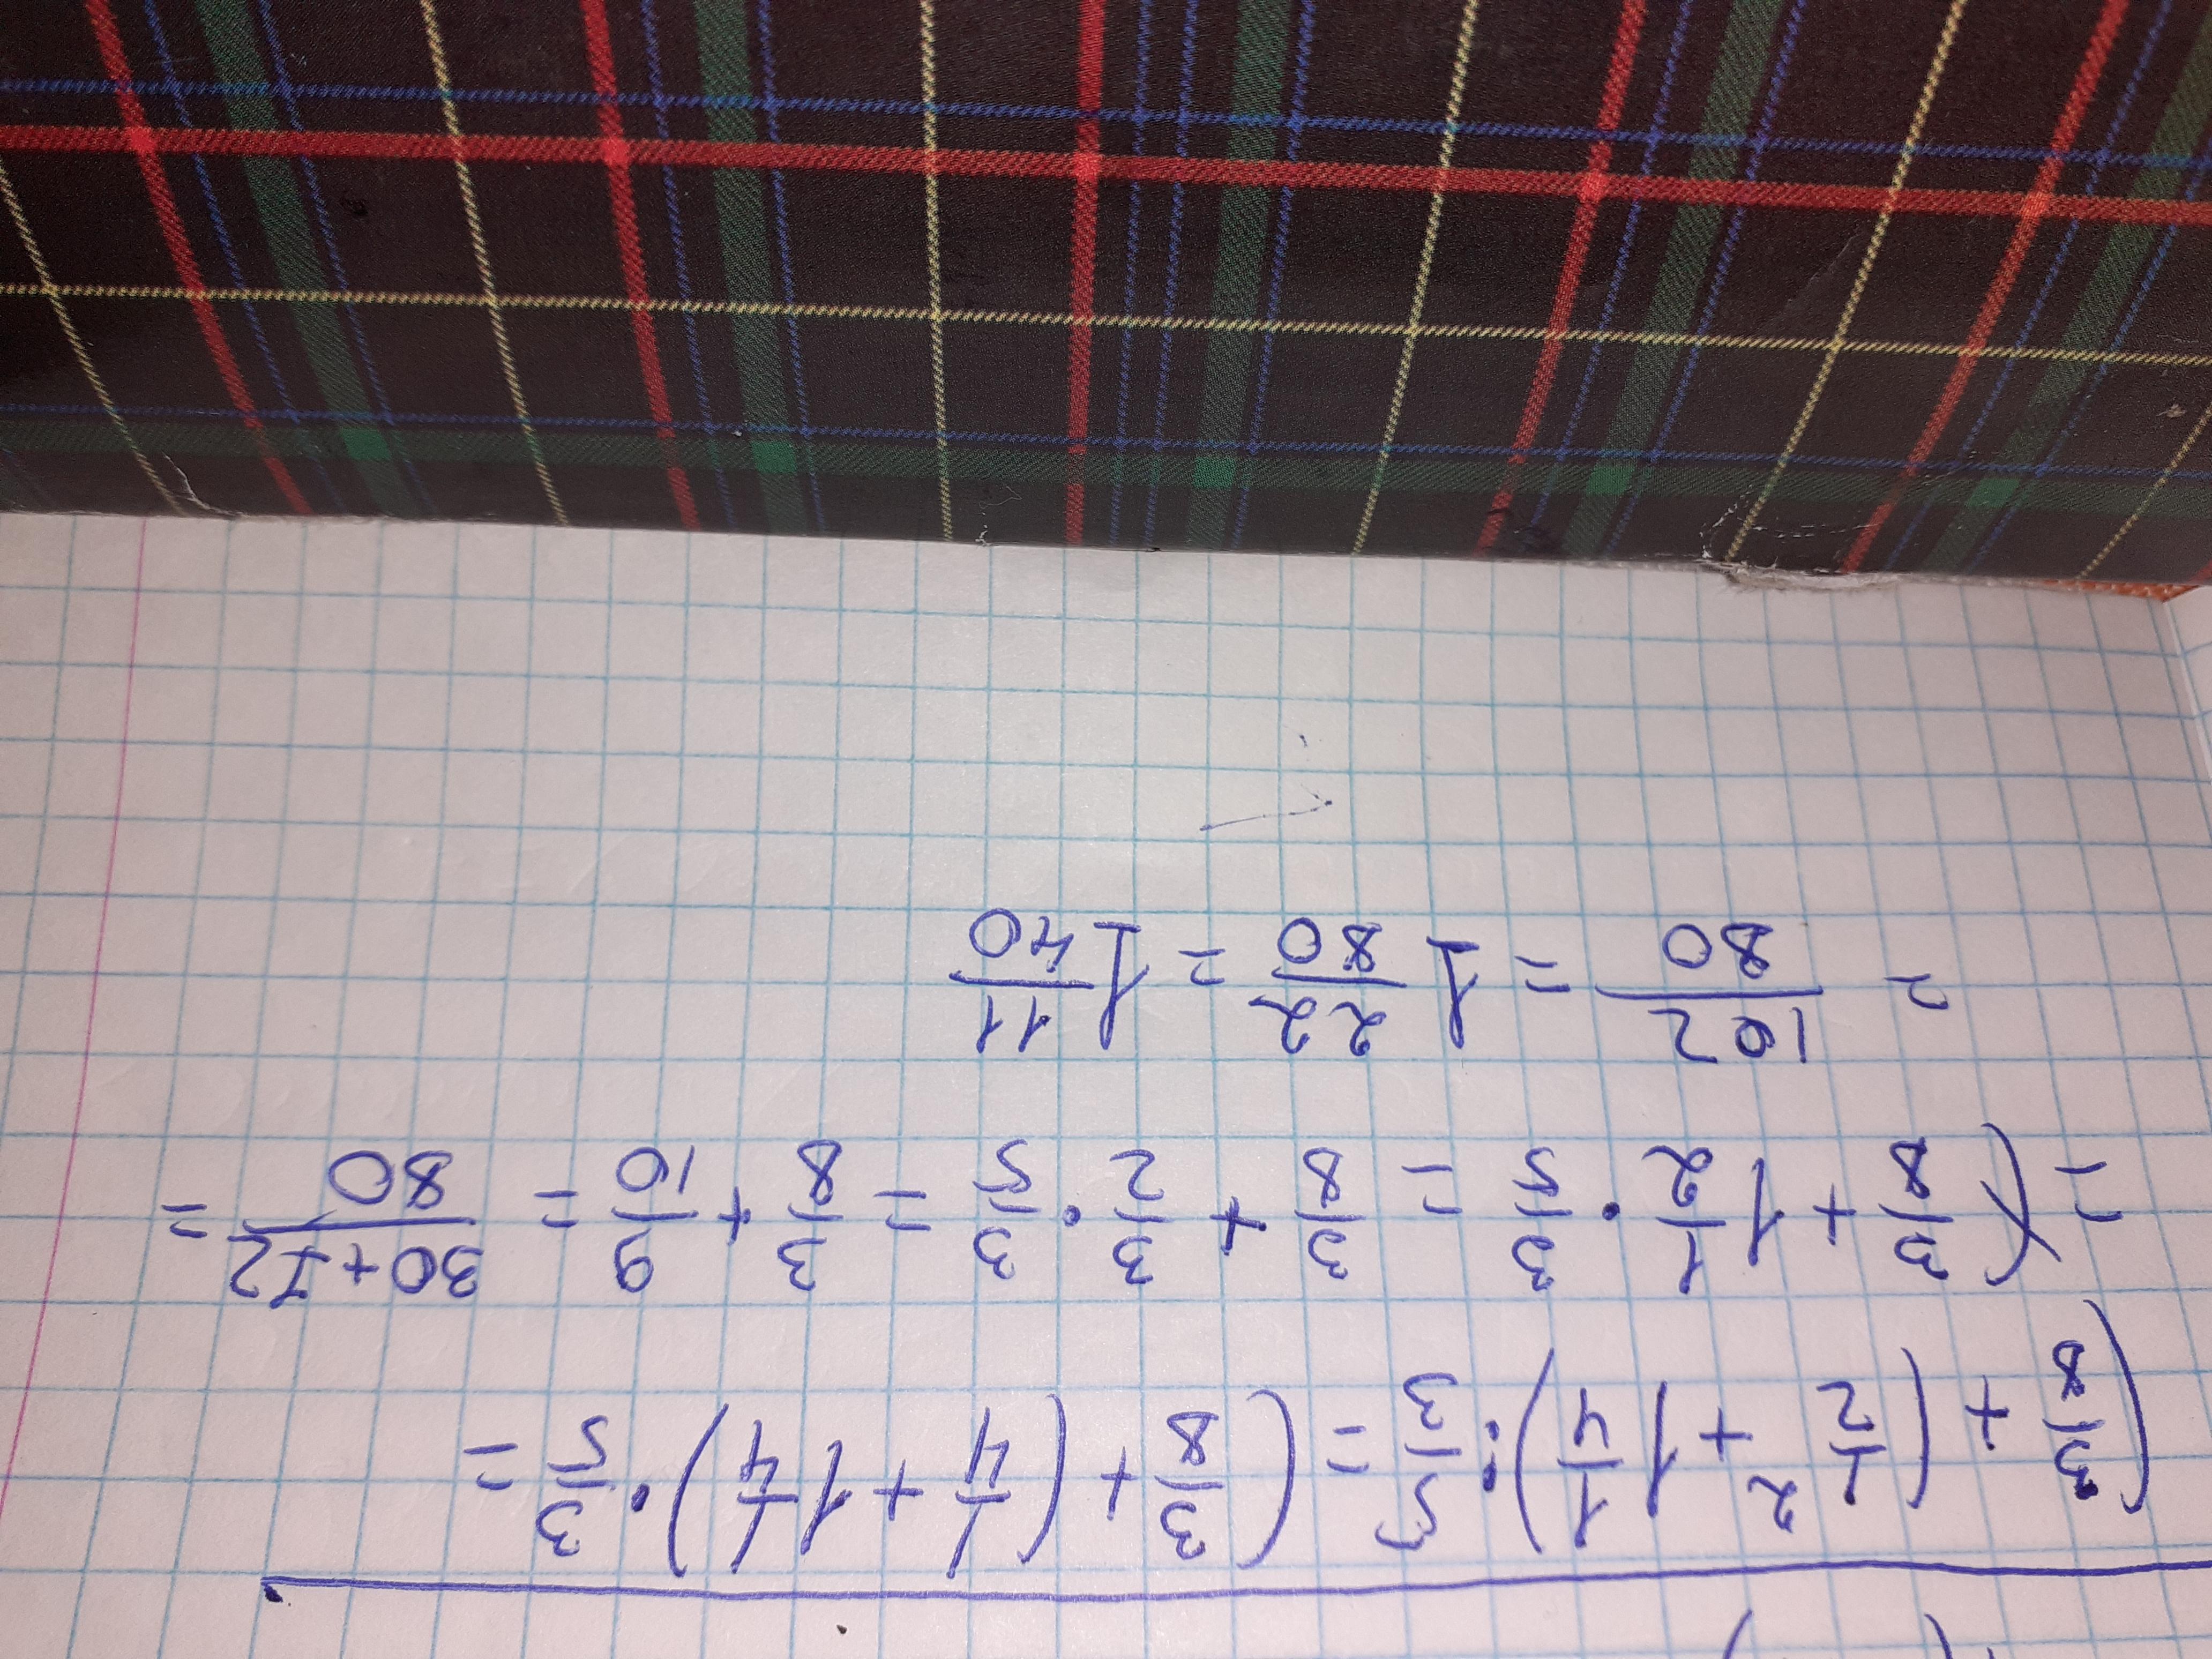 (3/8 + (1/2² + 1 1/4) : 5/3 = (3/8 + (1/4 + 1 1/4) · 3/5 =
= 3/8 + 1 1/2 · 3/5 = 3/8 + 3/2 · 3/5 = 3/8 + 9/10 = 30+72/80 =
= 102/80 = 1 22/80 = 1 11/40